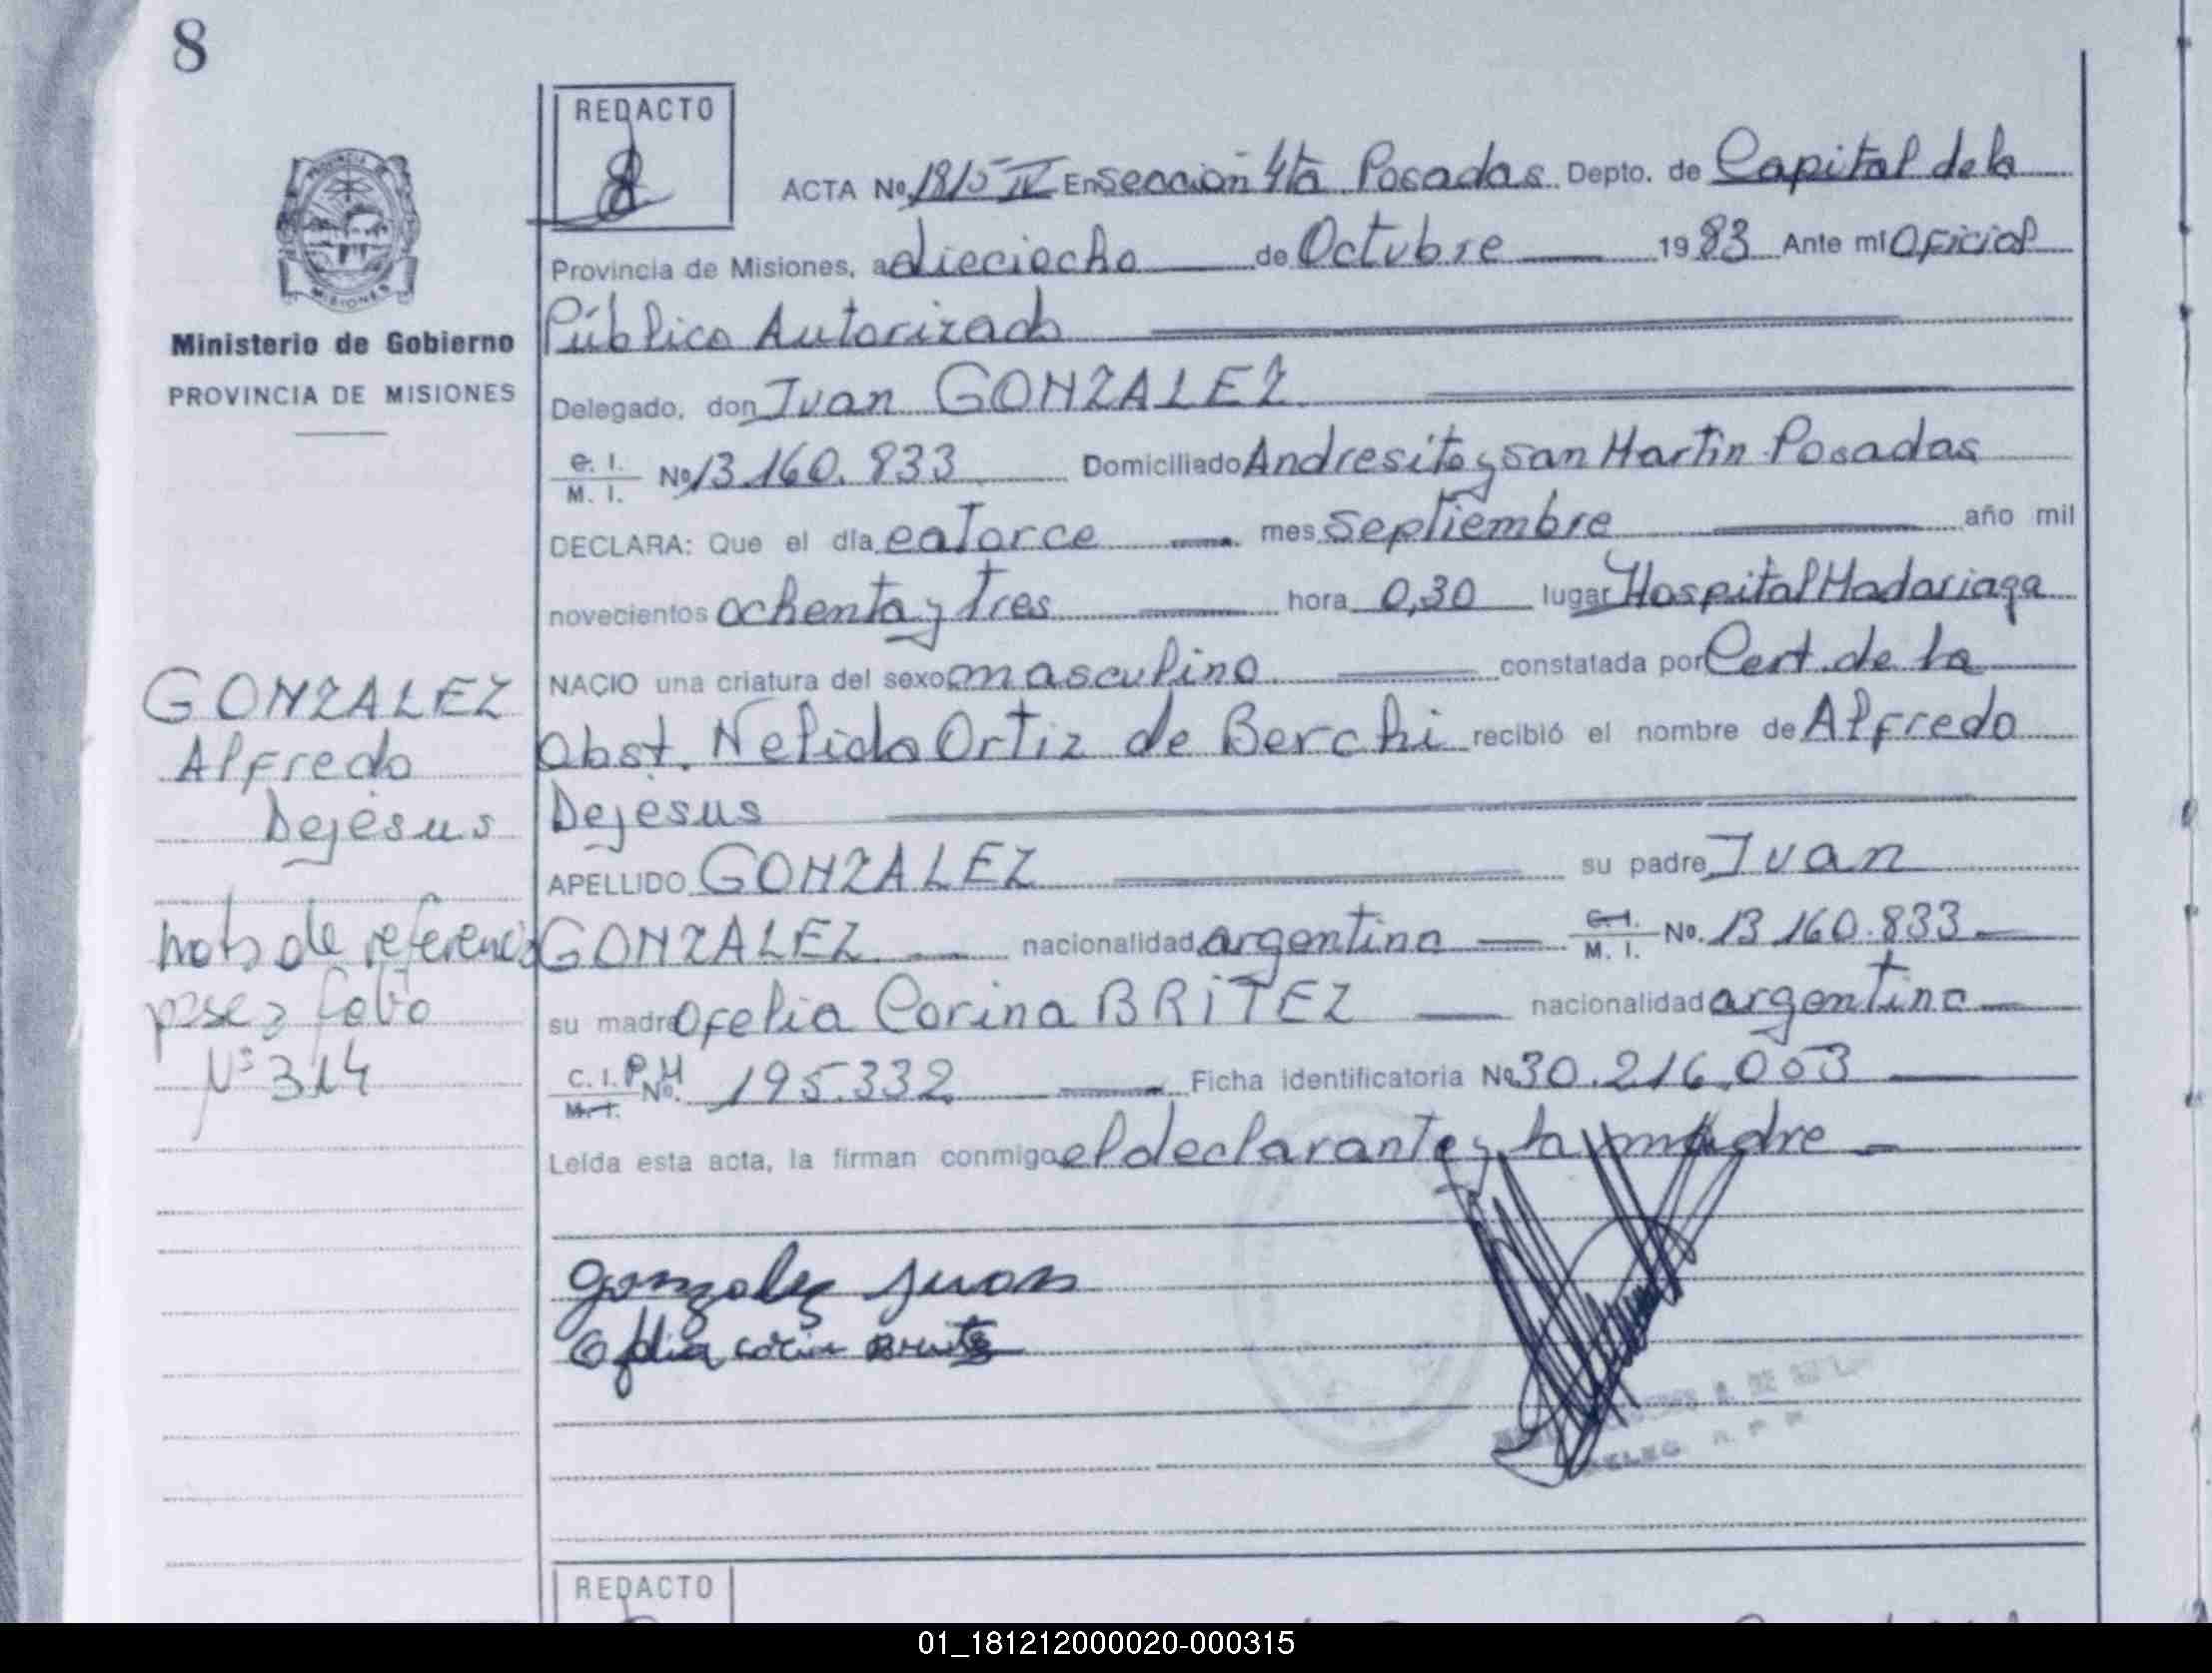 8
REDACTO
ACTA No. 1815 IV En sección 4ta Posadas Depto. de Capital de la
Provincia de Misiones, a dieciocho de Octubre 1983 Ante mi Oficial
Público Autorizado
Ministerio de Gobierno
PROVINCIA DE MISIONES
Delegado, don Juan GONZALEZ
C. I. M. I. No 13.160.833 Domiciliado Andresito y San Martin Posadas
DECLARA: Que el dia catorce mes Septiembre año mil
novecientos ochenta y tres hora 0,30 lugar Hospital Madariaga
NACIO una criatura del sexo masculino constatada por Cert. de la
Obst. Nelida Ortiz de Berchi recibió el nombre de Alfredo
Dejesus
APELLIDO GONZALEZ su padre Juan
GONZALEZ nacionalidad argentina C. I. M. I. No. 13.160.833
su madre Ofelia Corina BRITEZ nacionalidad argentina
C. I. M. I. P.M No. 195.332 Ficha identificatoria No 30.216.003
Leída esta acta, la firman conmigo el declarante y la madre
GONZALEZ
Alfredo
Dejesus
nota de referencia
pase a folio
N° 314
Gonzalez Juan
Ofelia corina Britez
DELEG. R. P. P.
REDACTO
01_181212000020-000315